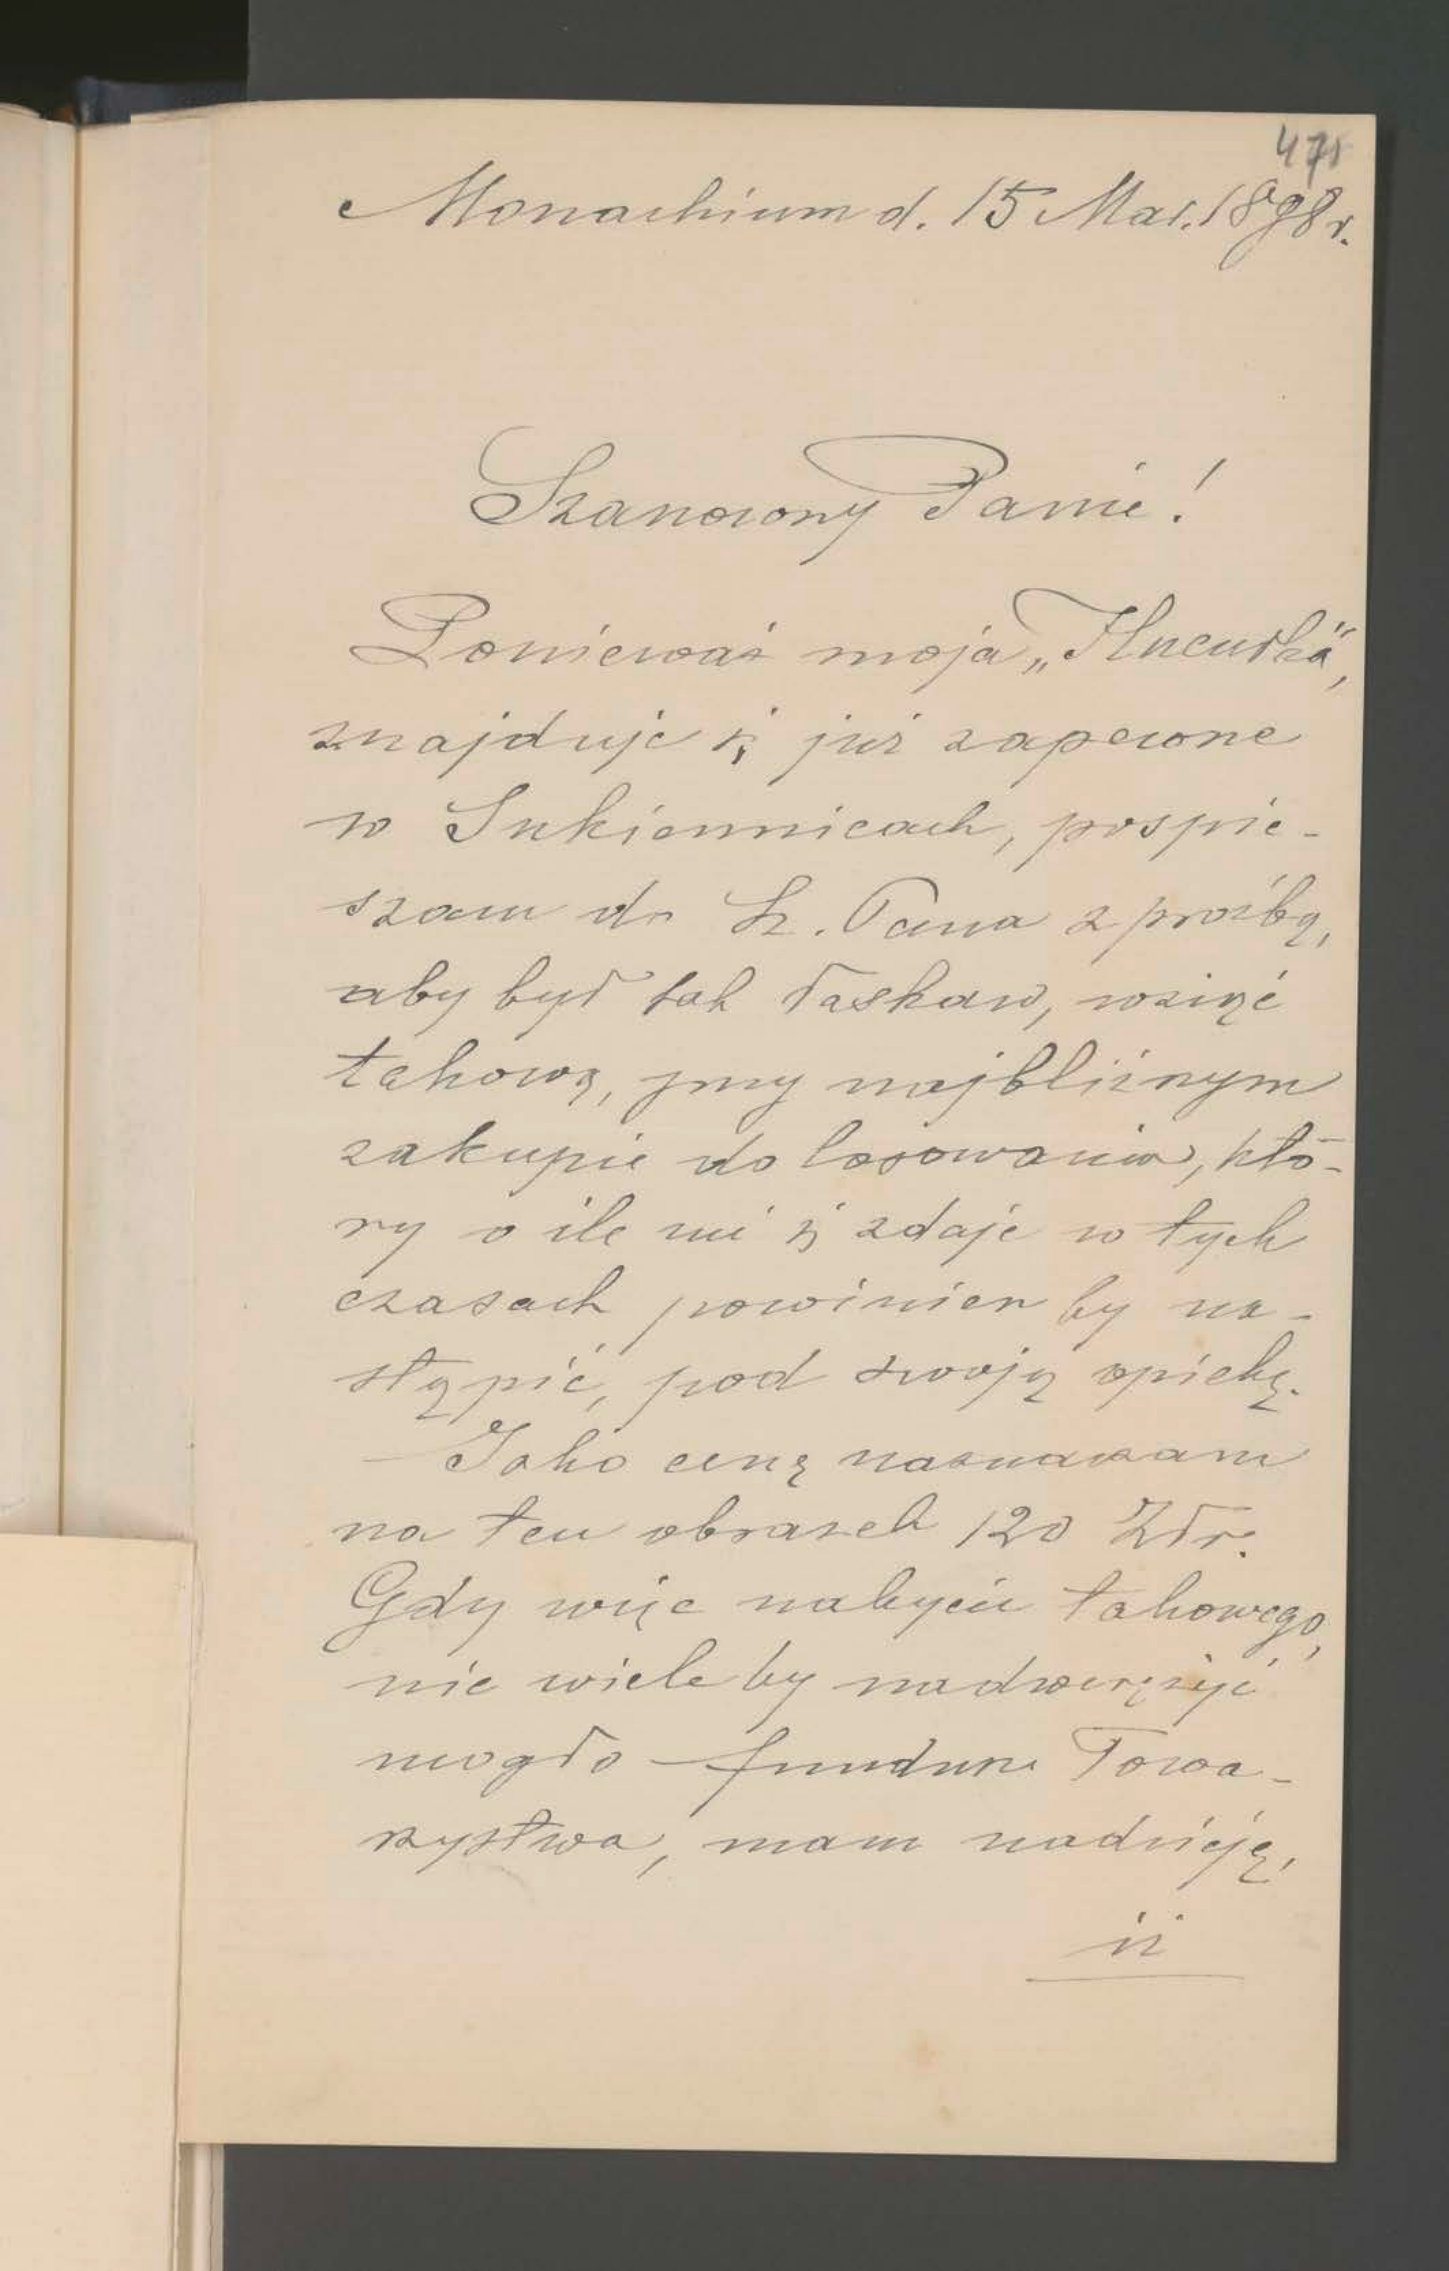 471
Monachium d. 15 Mar. 1898 r.
Szanowny Panie!
Ponieważ moja „Hucułka",
znajduje się już zapewne
w Sukiennicach, pospie-
szam do Sz. Pana z prośbą,
aby był tak łaskaw, wziąć
takową, przy najbliżnym
zakupie do losowania, któ-
ry o ile mi się zdaje w tych
czasach powinien by na-
stąpić, pod swoją opiekę.
— Jako cenę naznaczam
na ten obrazek 120 Złr.
Gdy więc nabycie takowego,
nie wiele by nadwerężyć
mogło fundusz Towa-
rzystwa, mam nadzieję,
iż